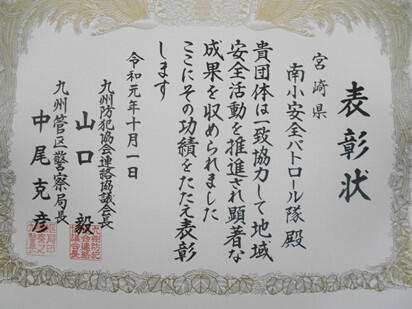 表彰状
宮崎県
南小安全パトロール隊殿
貴団体は一致協力して地域
安全活動を推進され顕著な
成果を収められました
ここにその功績をたたえ表彰
します
令和元年十月一日
九州防犯協会連絡協議会長
山口毅
九州管区警察局長
中尾克彦